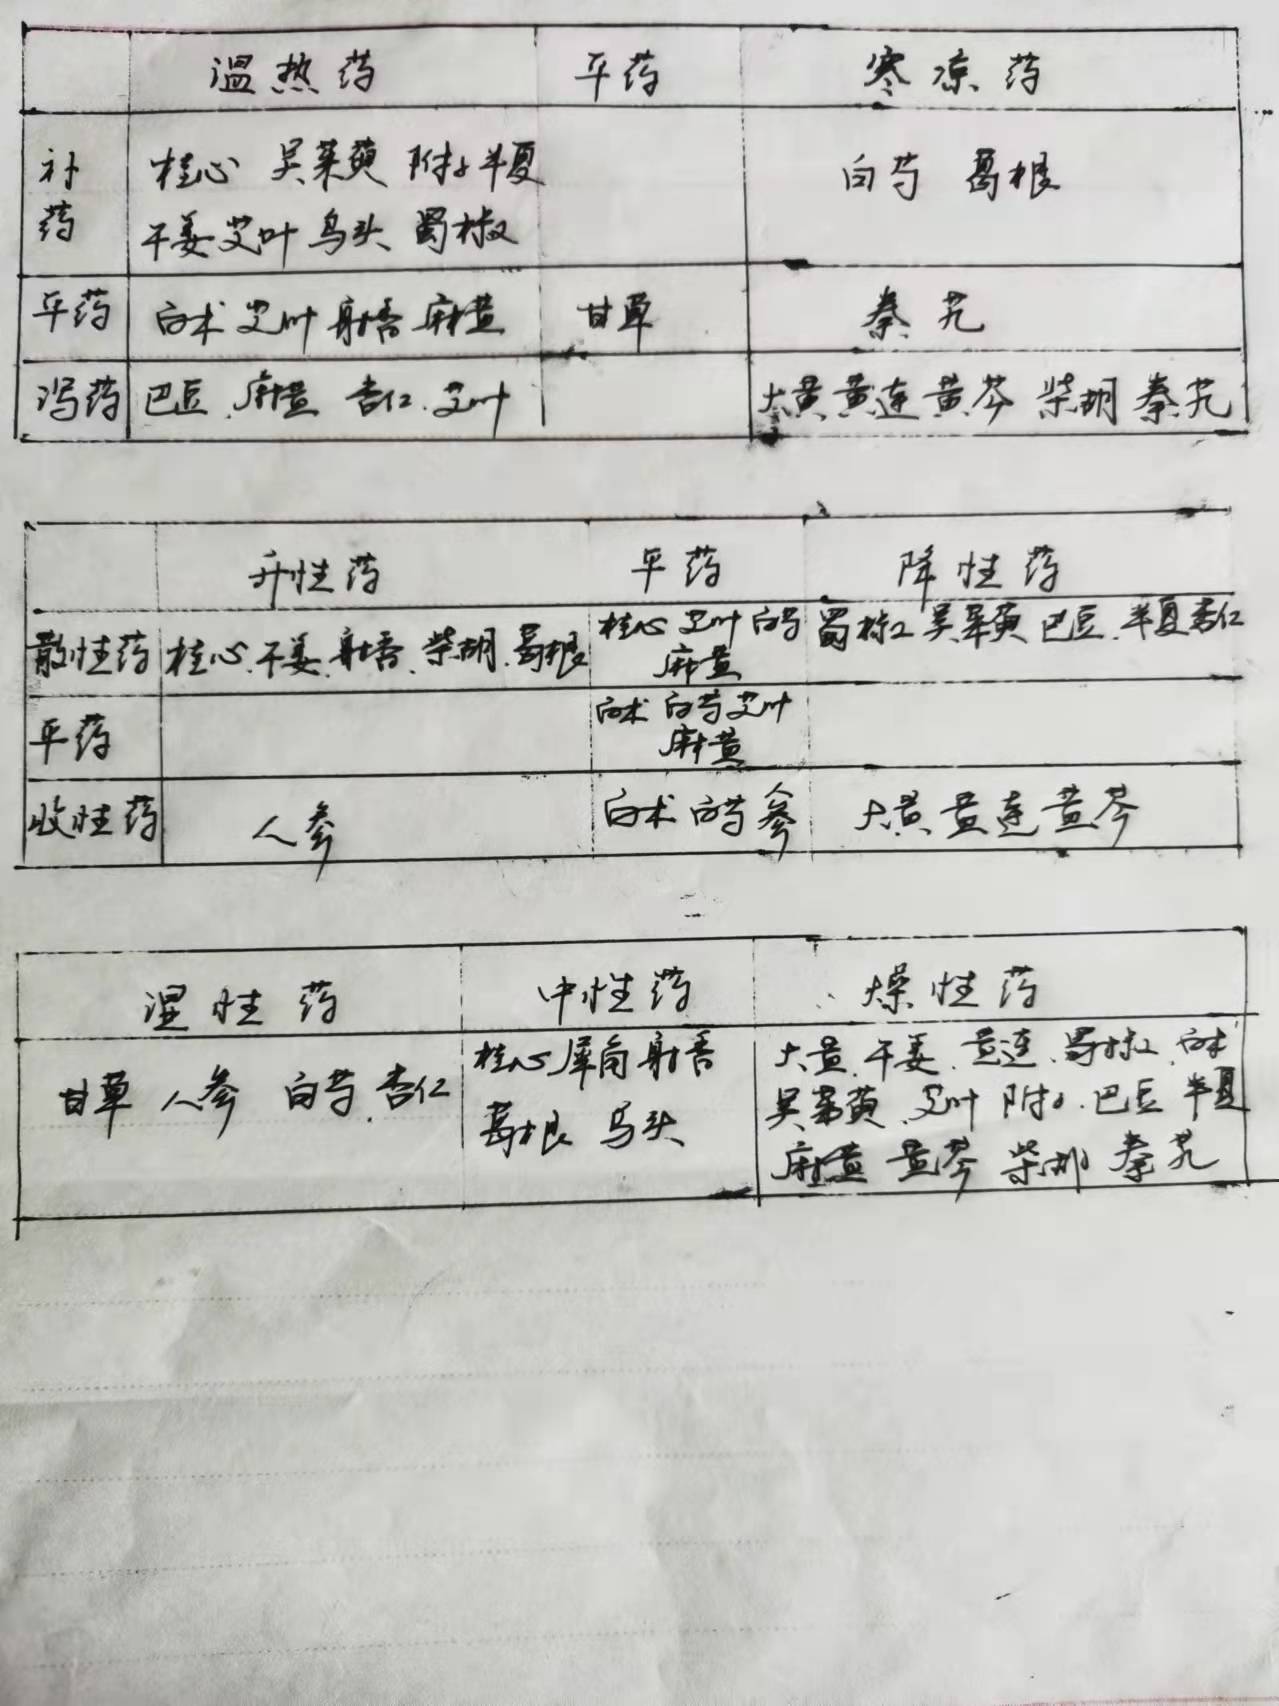 温热药 平药 寒凉药
补药 桂心 吴茱萸 附子 半夏 白芍 葛根
干姜 艾叶 乌头 蜀椒
平药 白术 艾叶 射香 麻黄 甘草 秦艽
泻药 巴豆、麻黄 杏仁、艾叶 大黄 黄连 黄芩 柴胡 秦艽
升性药 平药 降性药
散性药 桂心、干姜、射香、柴胡、葛根 桂心 艾叶 白芍 蜀椒 吴茱萸 巴豆、半夏 杏仁
麻黄
平药 白术 白芍 艾叶
麻黄
收性药 人参 白术 白芍 人参 大黄 黄连 黄芩
湿性药 中性药 燥性药
甘草 人参 白芍、杏仁 桂心 犀角 射香 大黄、干姜、黄连、蜀椒、白术
葛根 乌头 吴茱萸、艾叶 附子、巴豆 半夏
麻黄 黄芩 柴胡 秦艽